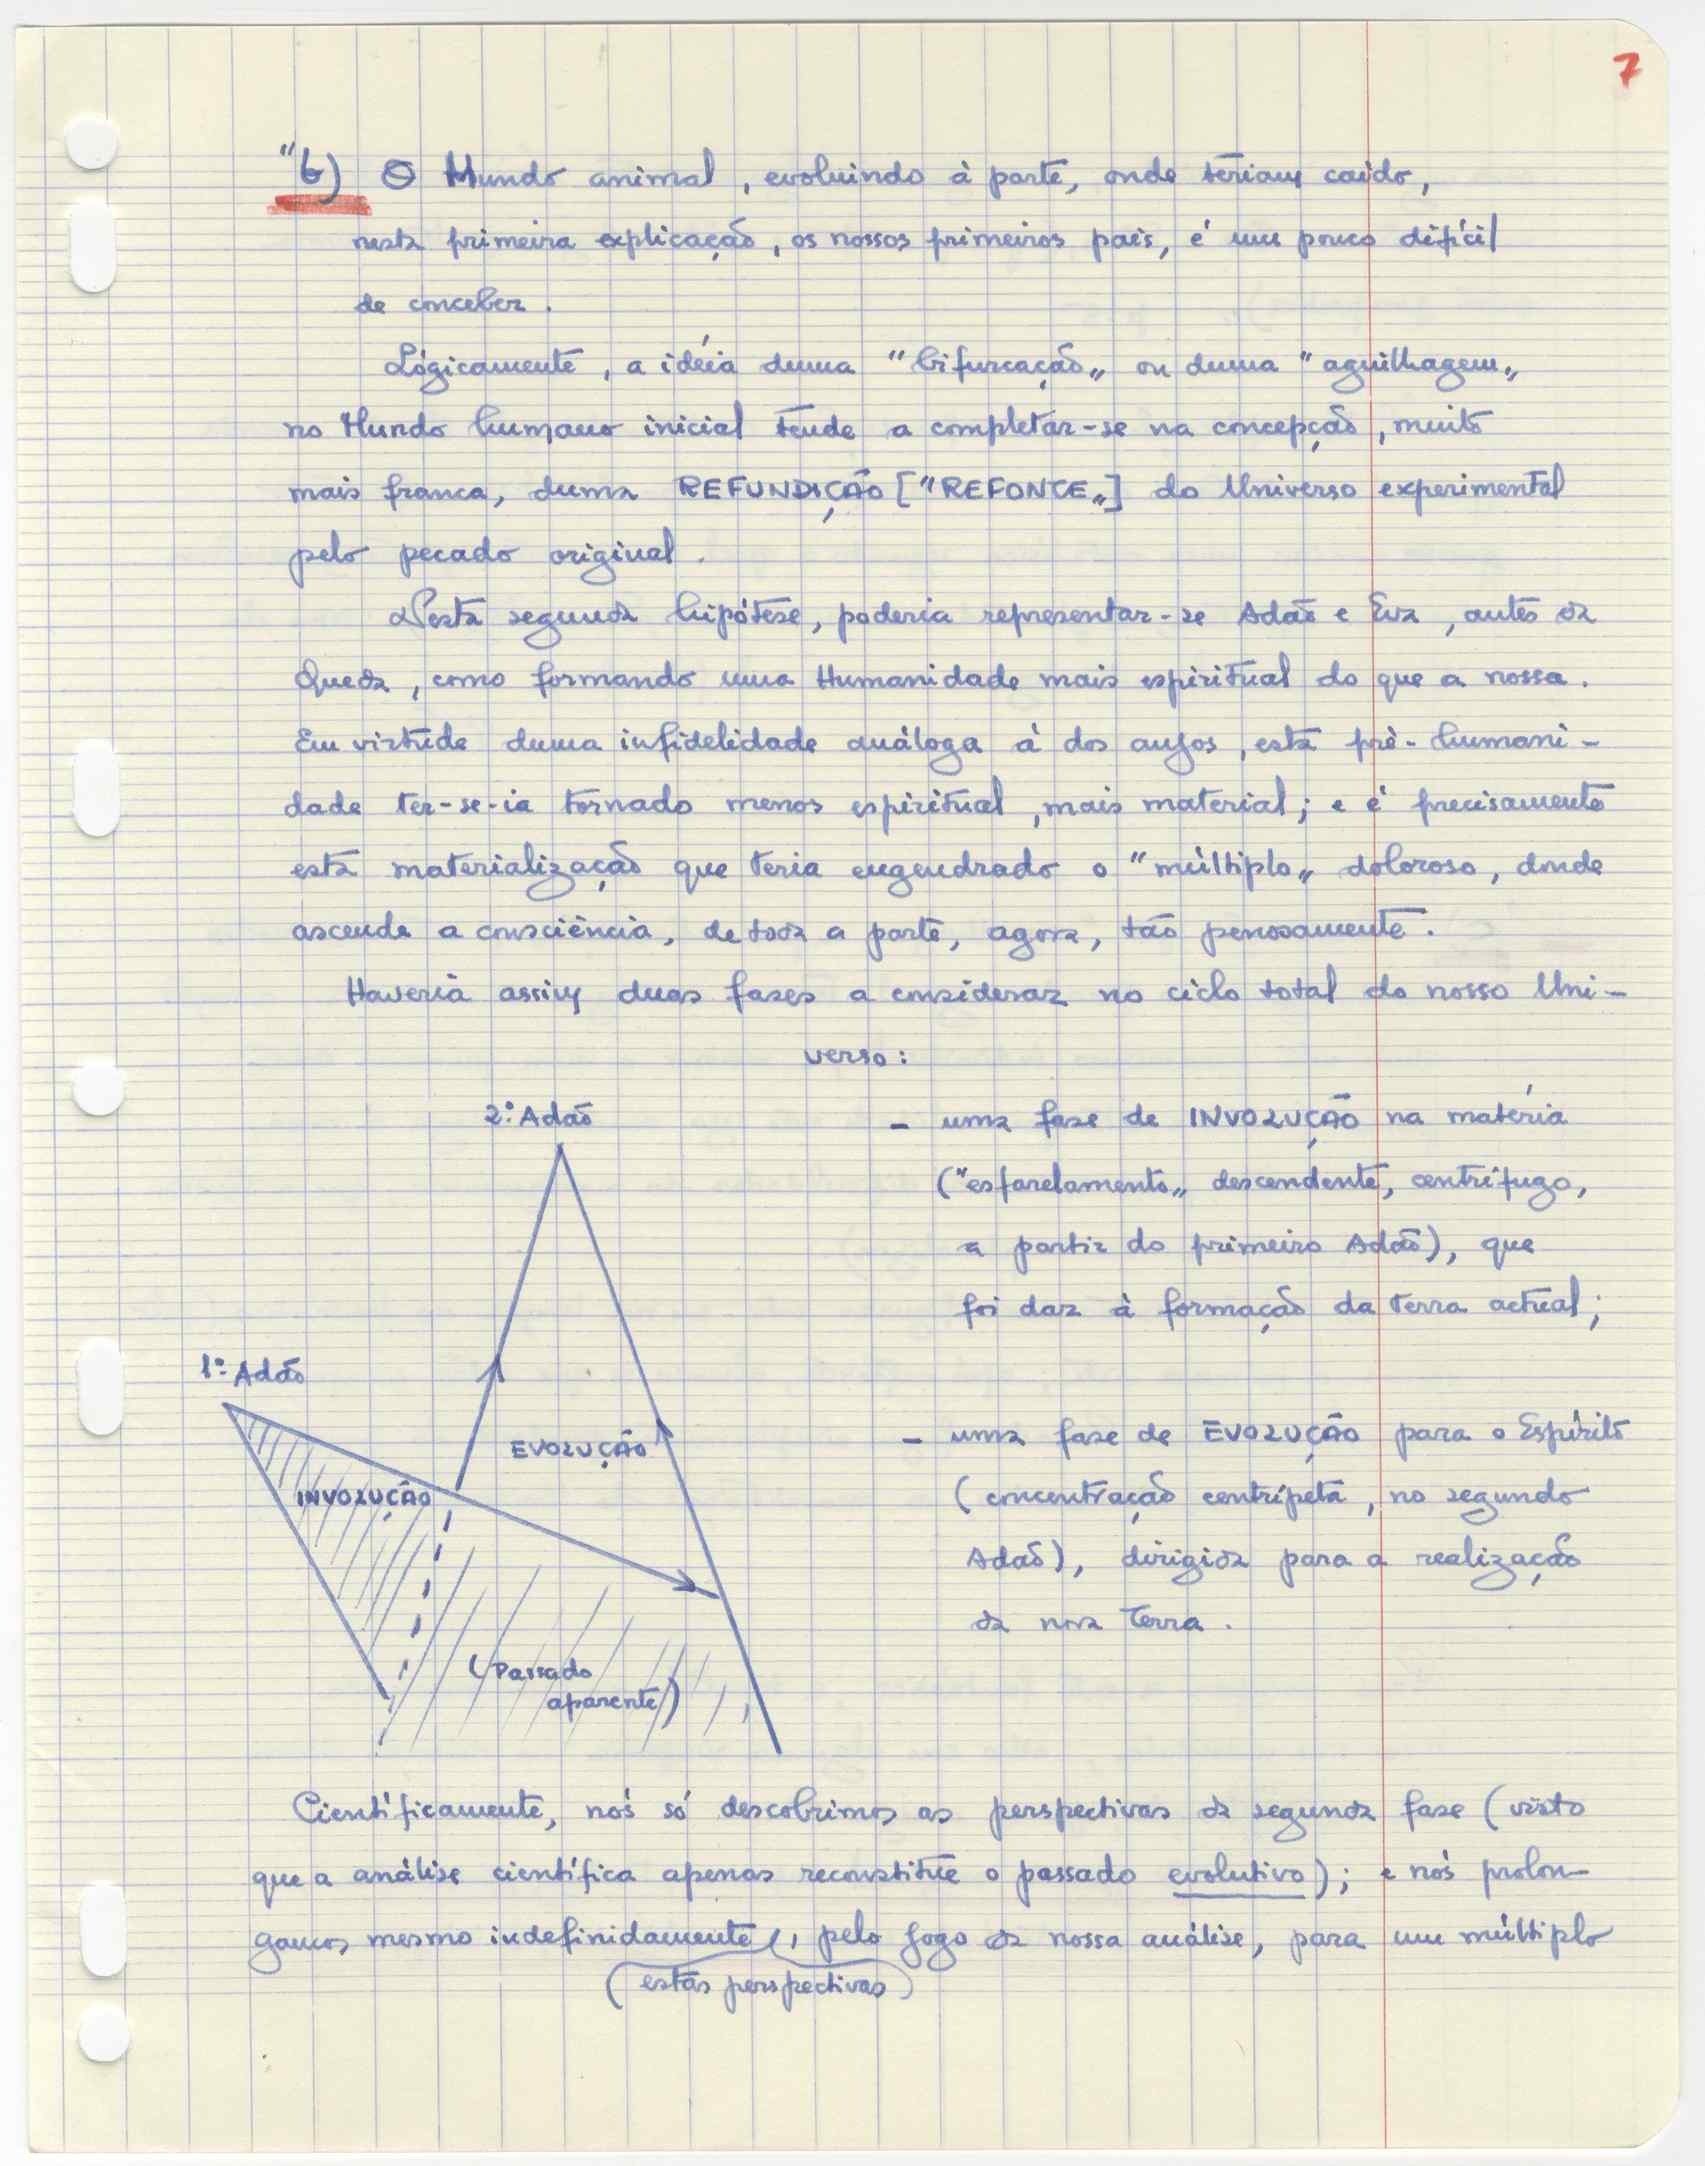 7
"b) O Mundo animal, evoluindo à parte, onde teriam caído,
nesta primeira explicação, os nossos primeiros pais, é um pouco difícil
de conceber.
Lógicamente, a idéia duma "bifurcação„ ou duma "aguilhagem„
no Mundo humano inicial tende a completar-se na concepção, muito
mais franca, duma REFUNDIÇÃO ["REFONTE„] do Universo experimental
pelo pecado original.
Nesta segunda hipótese, poderia representar-se Adão e Eva, antes da
Queda, como formando uma Humanidade mais espiritual do que a nossa.
Em virtude duma infidelidade análoga à dos anjos, esta pré-humani-
dade ter-se-ia tornado menos espiritual, mais material; e é precisamente
esta materialização que teria engendrado o "múltiplo„ doloroso, donde
ascende a consciência, de toda a parte, agora, tão penosamente.
Haveria assim duas fases a considerar no ciclo total do nosso Uni-
verso:
2.º Adão
- uma fase de INVOLUÇÃO na matéria
("esfarelamento„ descendente, centrífugo,
a partir do primeiro Adão), que
foi dar à formação da terra actual;
1.º Adão
EVOLUÇÃO
- uma fase de EVOLUÇÃO para o Espírito
INVOLUÇÃO
(concentração centrípeta, no segundo
Adão), dirigida para a realização
da nova Terra.
(Passado
aparente)
Científicamente, nós só descobrimos as perspectivas da segunda fase (visto
que a análise científica apenas reconstitue o passado evolutivo); e nós prolon-
gamos mesmo indefinidamente, pelo jogo da nossa análise, para um múltiplo
(estas perspectivas)